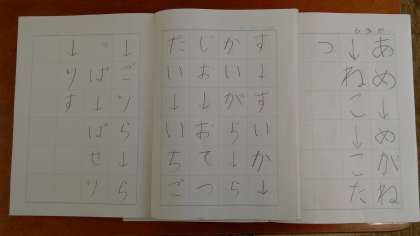 あめ↓めがね
↓ねこ↓こた
つ
す↓すいか↓
かいがら↓ら
じお↓おてつ
だい↓いちご
↓ごりら↓ら
っぱ↓ぱせり
↓りす